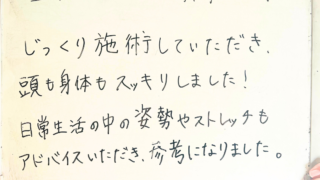 じっくり施術していただき、
頭も身体もスッキリしました!
日常生活の中の姿勢やストレッチも
アドバイスいただき、参考になりました。